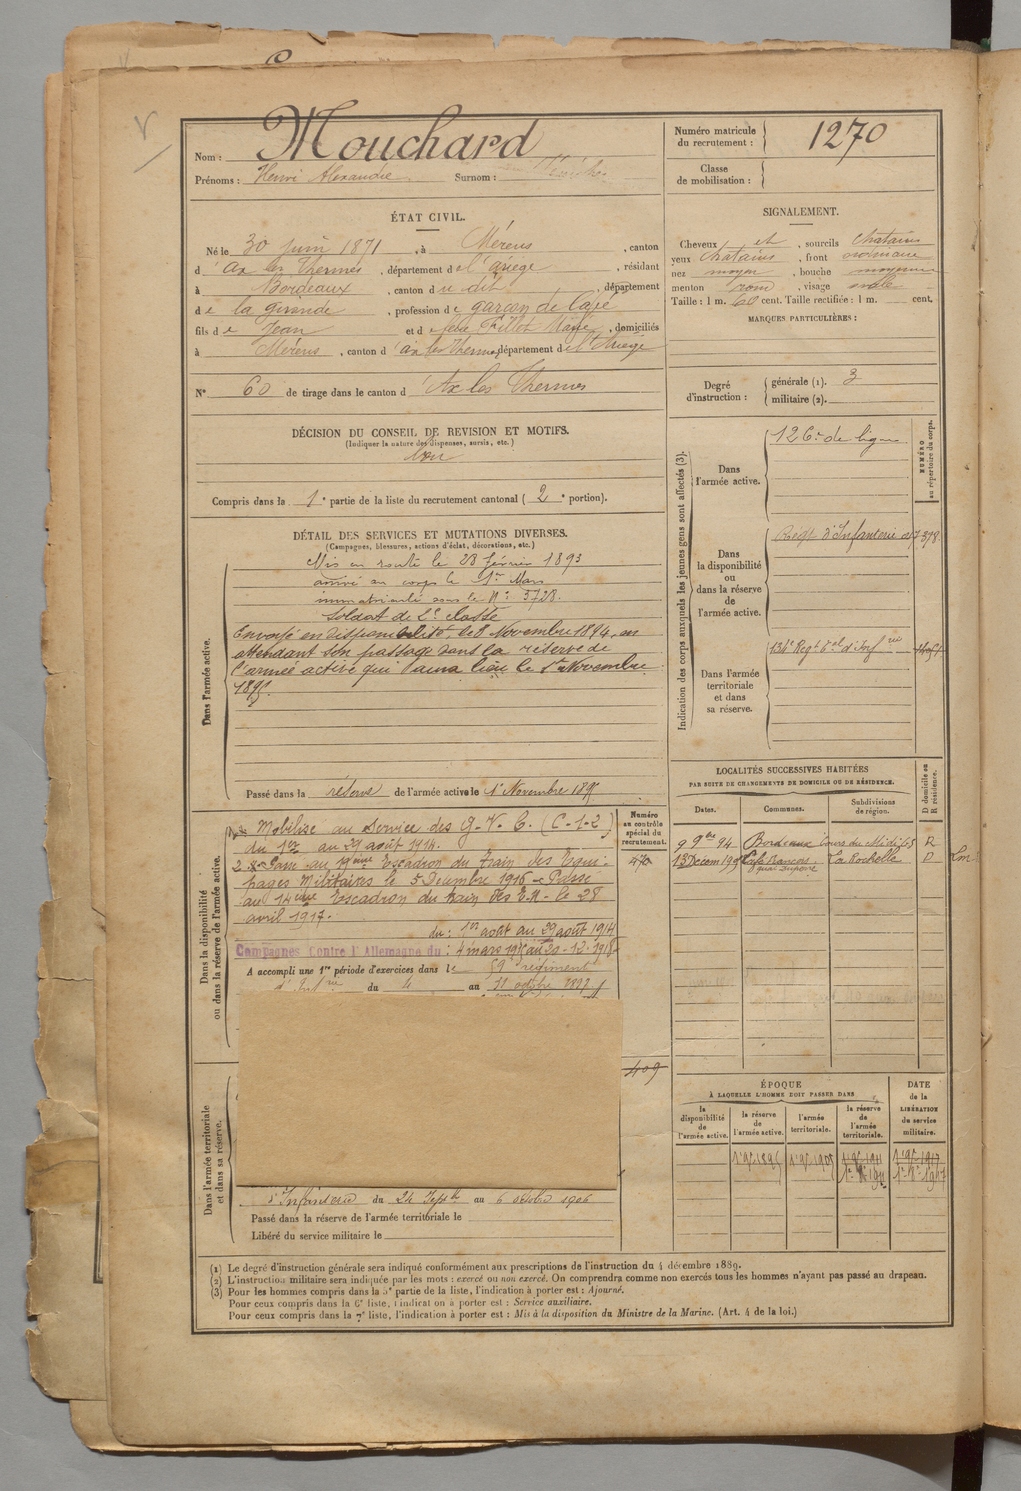 Nom : Mouchard
Prénoms : Henri Alexandre Surnom :
Numéro matricule du recrutement : 1270
Classe de mobilisation :
ÉTAT CIVIL.
Né le 30 juin 1871, à Mérens, canton
d'Ax les Thermes, département de l'Ariège, résidant
à Bordeaux, canton du dit, département
de la Gironde, profession de garçon de Café
fils de Jean et de feue Marie, domiciliés
à Mérens, canton d'ax les Thermes, département de l'Ariège
N° 60 de tirage dans le canton d'Ax les Thermes
SIGNALEMENT.
Cheveux et, sourcils chatains
yeux chatains, front ordinaire
nez moyen, bouche moyenne
menton rond, visage ovale
Taille : 1 m. 60 cent. Taille rectifiée : 1 m. cent.
MARQUES PARTICULIÈRES :
Degré d'instruction : générale (1). 3
militaire (2).
DÉCISION DU CONSEIL DE REVISION ET MOTIFS.
(Indiquer la nature des dispenses, sursis, etc.)
bon
Compris dans la 1e partie de la liste du recrutement cantonal (2e portion).
DÉTAIL DES SERVICES ET MUTATIONS DIVERSES.
(Campagnes, blessures, actions d'éclat, décorations, etc.)
Dans l'armée active.
Mis en route le 28 février 1893
arrivé au corps le 1er Mars
immatriculé sous le N° 3728.
Soldat de 2e classe
Envoyé en disponibilité, le 8 Novembre 1894, en
attendant son passage dans la réserve de
l'armée active qui aura lieu le 1er Novembre
1895.
Passé dans la réserve de l'armée active le 1er Novembre 1895
Indication des corps auxquels les jeunes gens sont affectés (3).
NUMÉRO au répertoire du corps.
Dans l'armée active.
126e de ligne
Dans la disponibilité ou dans la réserve de l'armée active.
Régt d'Infanterie
Dans l'armée territoriale et dans sa réserve.
134e Régt tal d'Infrie
LOCALITÉS SUCCESSIVES HABITÉES
PAR SUITE DE CHANGEMENTS DE DOMICILE OU DE RÉSIDENCE.
Dates. Communes. Subdivisions de région. D domicile ou R résidence.
9 9bre 94 Bordeaux Cours du Midi 63 R
13 Décem 1905 Café Français quai Duperré La Rochelle D
Dans la disponibilité ou dans la réserve de l'armée active.
Numéro au contrôle spécial du recrutement.
Mobilisé au Service des G.V.C. (C-1-2)
du 1er au 29 août 1914.
Passé au 19ème Escadron du Train des Equi-
pages Militaires le 5 Décembre 1916 – Passé
au 14ème Escadron du train des E.M. le 28
avril 1917.
du : 1er août au 29 août 1914
Campagnes Contre l'Allemagne du : 4 mars 1915 au 20-12-1918
A accompli une 1re période d'exercices dans le 59e régiment
d'Infrie du 4 au 31 octobre
409
Dans l'armée territoriale et dans sa réserve.
d'Infanterie du 24 Septbre au 6 octobre 1906
Passé dans la réserve de l'armée territoriale le
Libéré du service militaire le
ÉPOQUE
À LAQUELLE L'HOMME DOIT PASSER DANS
la disponibilité de l'armée active. la réserve de l'armée active. l'armée territoriale. la réserve de l'armée territoriale.
DATE de la LIBÉRATION du service militaire.
(1) Le degré d'instruction générale sera indiqué conformément aux prescriptions de l'instruction du 4 décembre 1889.
(2) L'instruction militaire sera indiquée par les mots : exercé ou non exercé. On comprendra comme non exercés tous les hommes n'ayant pas passé au drapeau.
(3) Pour les hommes compris dans la 5e partie de la liste, l'indication à porter est : Ajourné.
Pour ceux compris dans la 6e liste, l'indication à porter est : Service auxiliaire.
Pour ceux compris dans la 7e liste, l'indication à porter est : Mis à la disposition du Ministre de la Marine. (Art. 4 de la loi.)